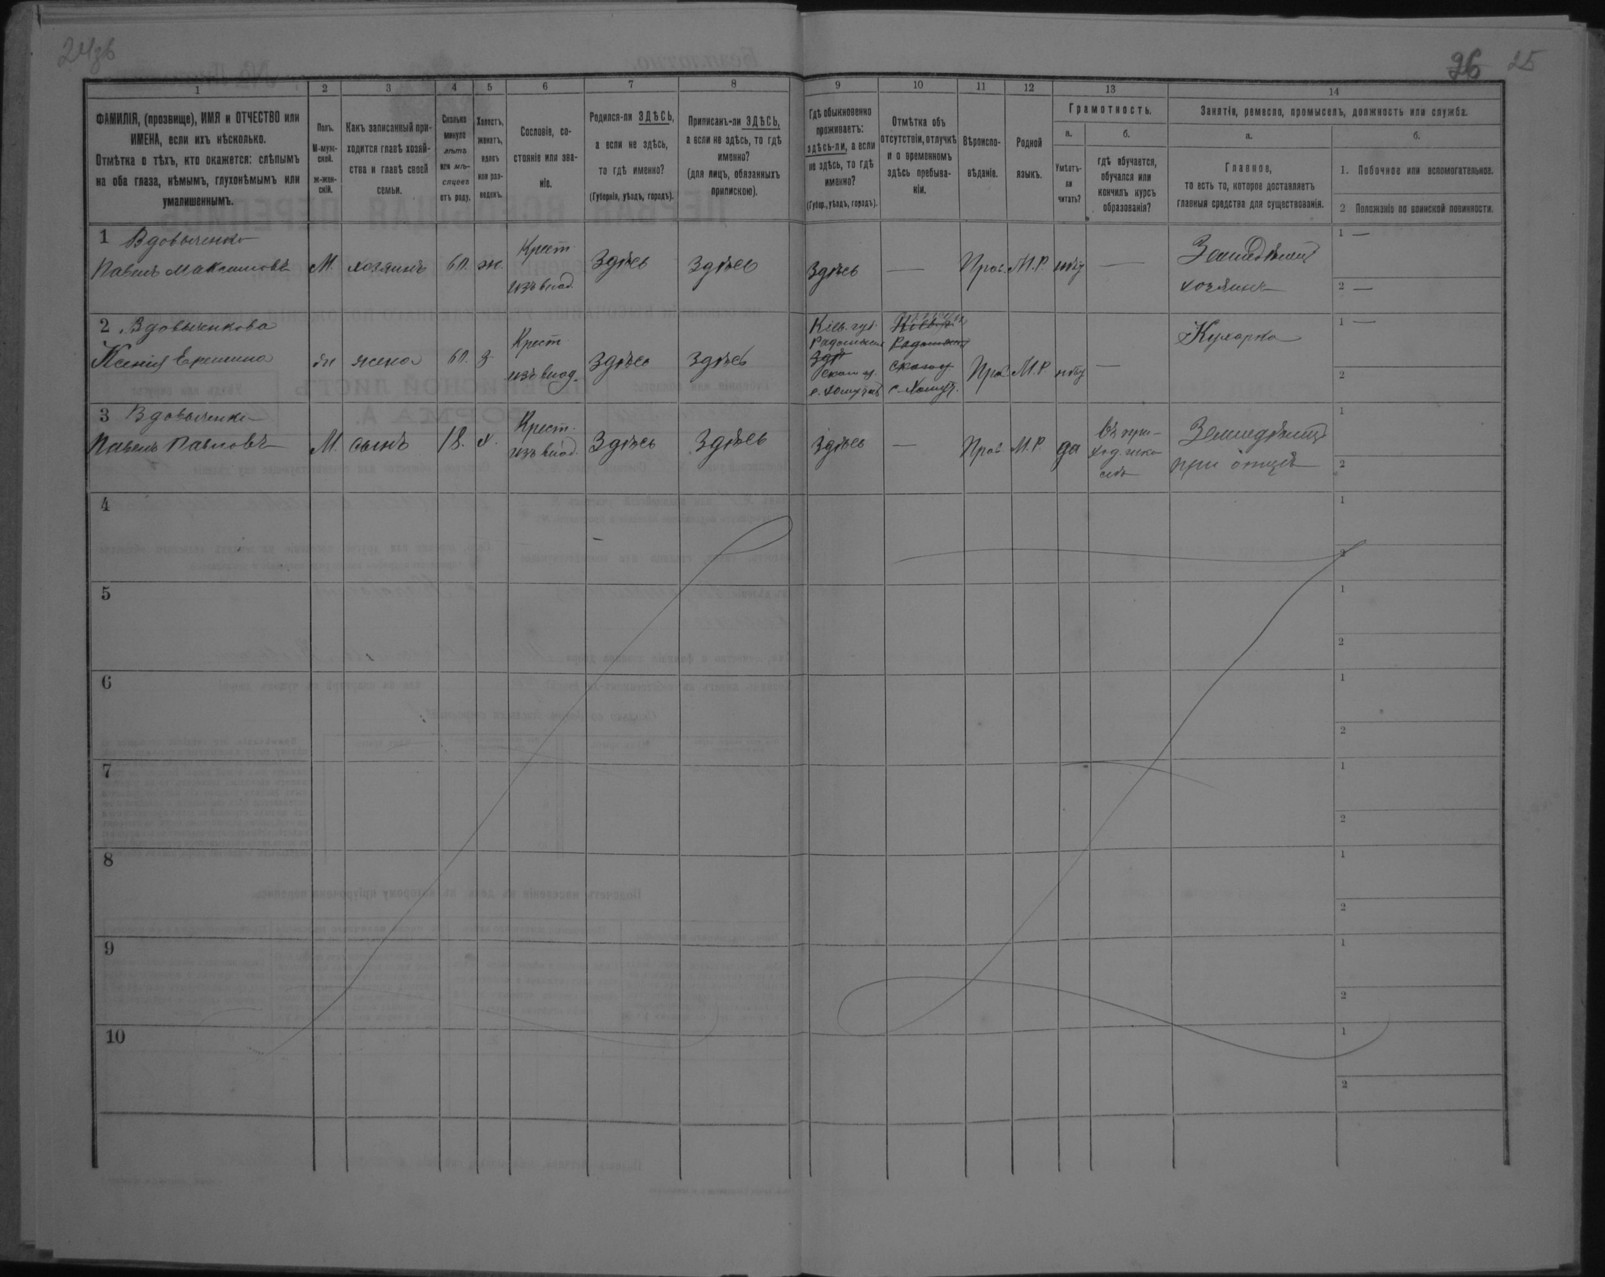 24об
26 25
1 2 3 4 5 6 7 8 9 10 11 12 13 14
ФАМИЛІЯ, (прозвище), ИМЯ и ОТЧЕСТВО или
ИМЕНА, если ихъ нѣсколько.
Отмѣтка о тѣхъ, кто окажется: слѣпымъ
на оба глаза, нѣмымъ, глухонѣмымъ или
умалишеннымъ.
Полъ.
М-муж-
ской.
ж-жен-
скій.
Какъ записанный при-
ходится главѣ хозяй-
ства и главѣ своей
семьи.
Сколько
минуло
лѣтъ
или мѣ-
сяцевъ
отъ роду.
Холостъ,
женатъ,
вдовъ
или раз-
веденъ.
Сословіе, со-
стояніе или зва-
ніе.
Родился-ли ЗДѢСЬ,
а если не здѣсь,
то гдѣ именно?
(Губернія, уѣздъ, городъ).
Приписанъ-ли ЗДѢСЬ,
а если не здѣсь, то гдѣ
именно?
(для лицъ, обязанныхъ
припискою).
Гдѣ обыкновенно
проживаетъ:
здѣсь-ли, а если
не здѣсь, то гдѣ
именно?
(Губер., уѣздъ, городъ).
Отмѣтка объ
отсутствіи, отлучкѣ
и о временномъ
здѣсь пребыва-
ніи.
Вѣроиспо-
вѣданіе.
Родной
языкъ.
Грамотность.
а.
Умѣетъ-
ли
читать?
б.
гдѣ обучается,
обучался или
кончилъ курсъ
образованія?
Занятія, ремесло, промыселъ, должность или служба.
а.
Главное,
то есть то, которое доставляетъ
главныя средства для существованія.
б.
1. Побочное или вспомогательное.
2 Положеніе по воинской повинности.
1 Вдовыченко
Павелъ Максимовъ М. хозяинъ 60. ж. Крест. изъ влад. Здѣсь Здѣсь Здѣсь — Прав. М.Р. нѣтъ — Земледѣлецъ хозяинъ
1 —
2 —
2 Вдовыченкова
Ксенія жена 60. з. Крест. изъ влад. Здѣсь Здѣсь Кіев. губ. Прав. М.Р. нѣтъ — Кухарка
1 —
2
3 Вдовыченко
Павелъ Павловъ М. сынъ 18. х. Крест. изъ влад. Здѣсь Здѣсь Здѣсь — Прав. М.Р. да въ при- ход. шко- лѣ Земледѣлецъ при отцѣ
1
2
4
1
2
5
1
2
6
1
2
7
1
2
8
1
2
9
1
2
10
1
2